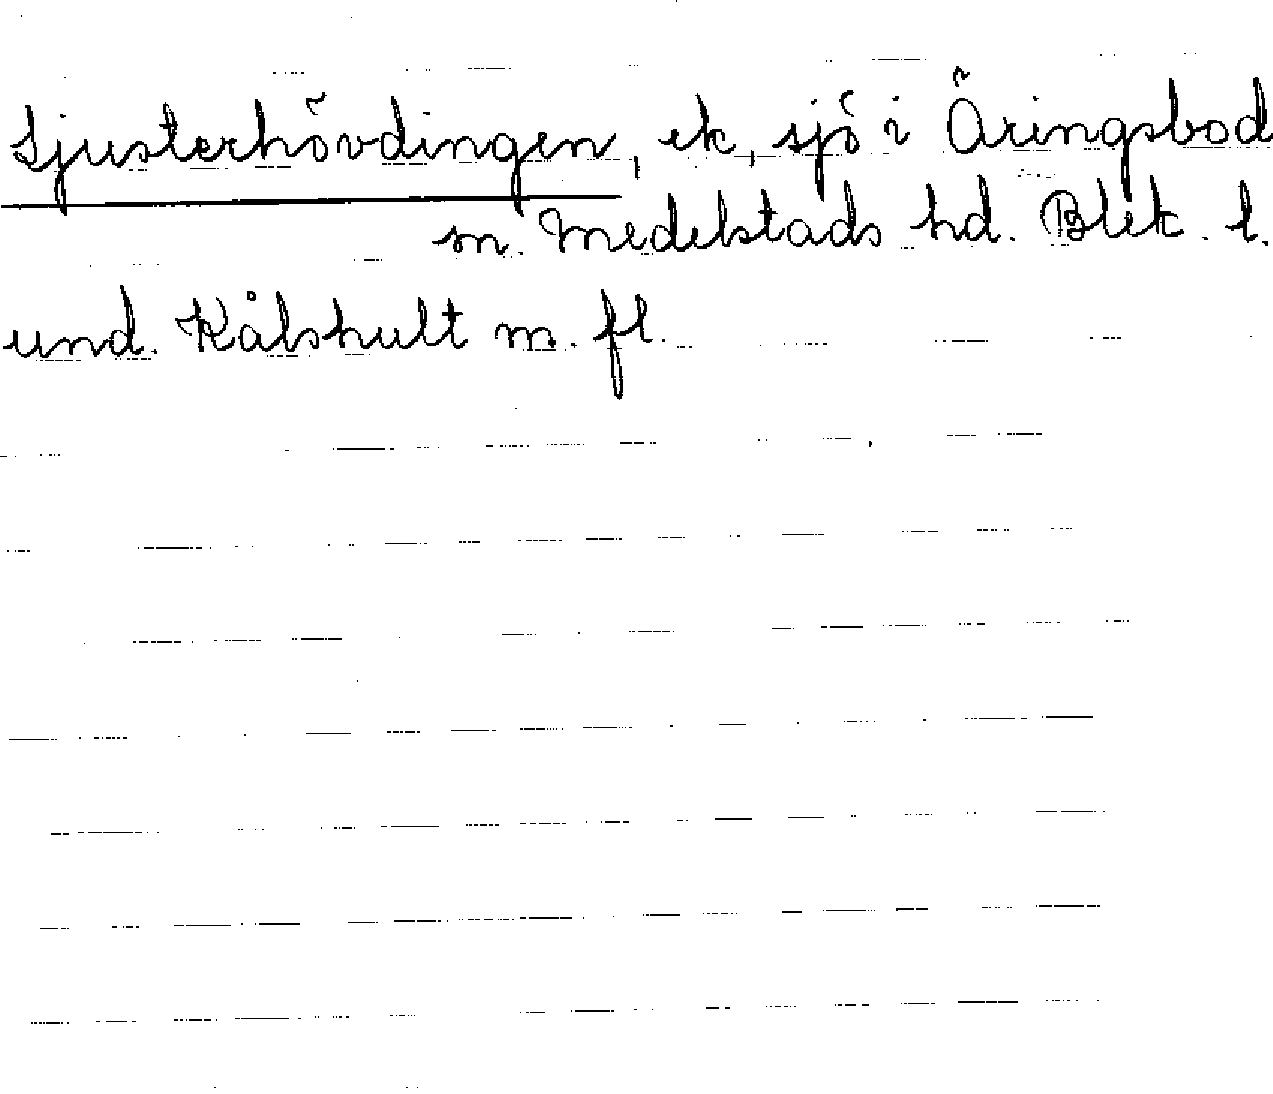 Ljusterhövdingen, ek, sjö i Äringsbod
sn. Medelstads hd. Blek. l.
und. Kålshult m. fl.